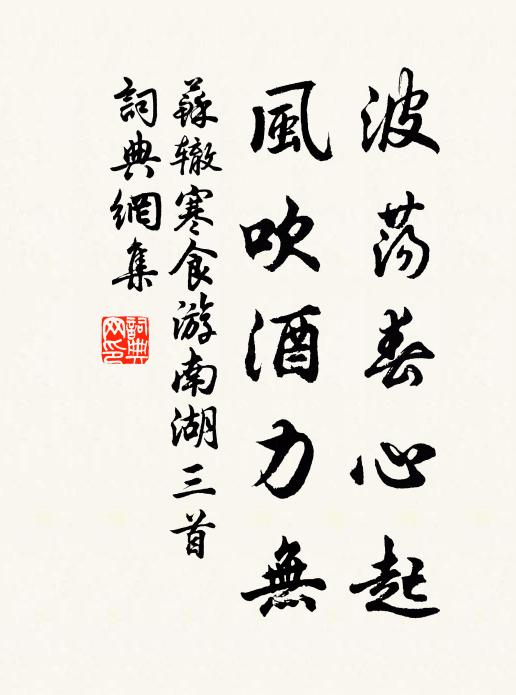 波蕩春心起
風吹酒力無
蘇辙寒食游南湖三首
詞典網集
詞典網印